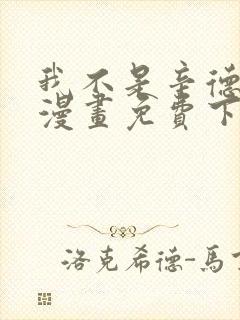 我不是辛德
漫畫免費下
洛克希德-馬丁